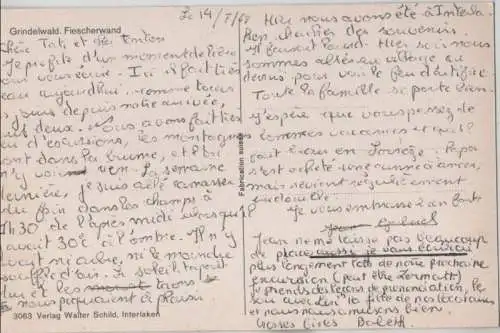 Le 14/7/68
Grindelwald. Fiescherwand
Chère Tati et
Je profite d'un moment de libre
pour vous écrire. Ici il fait très
beau aujourd'hui comme tous
jours depuis notre arrivée,
deux. Nous avons fait
d'excursions, les montagnes
sont dans la brume, et l'on
n'y voit rien. La semaine
dernière, je suis allé ramasser
du foin dans les champs à
1h30 de l'après midi lorsqu'il
y avait 30°C à l'ombre. Il n'y
avait ni arbre, ni le moindre
souffle d'air. Le soleil tapait
dur et les taons
nous piquaient à
3063 Verlag Walter Schild, Interlaken
Fabrication suisse
Hier nous avons été à Interla-
ken chercher des souvenirs.
Il faisait lourd. Hier soir nous
sommes allés en village au
dessus pour voir le feu d'artifice.
Toute la famille se porte bien.
J'espère que vous passez de
bonnes vacances et qu'il
fait beau en Papa
s'est acheté une canne à lancer,
mais revient régulièrement
bredouille.
Je vous embrasse bien fort
Gabriel
Jean ne me laisse pas beaucoup
de place aussi je vous
plus longuement lors de notre prochaine
excursion (peut être Zermatt)
Je prends des leçons de prononciation, le
soir avec la fille de nos locataires
et nous nous amusons bien.
Grosses bises